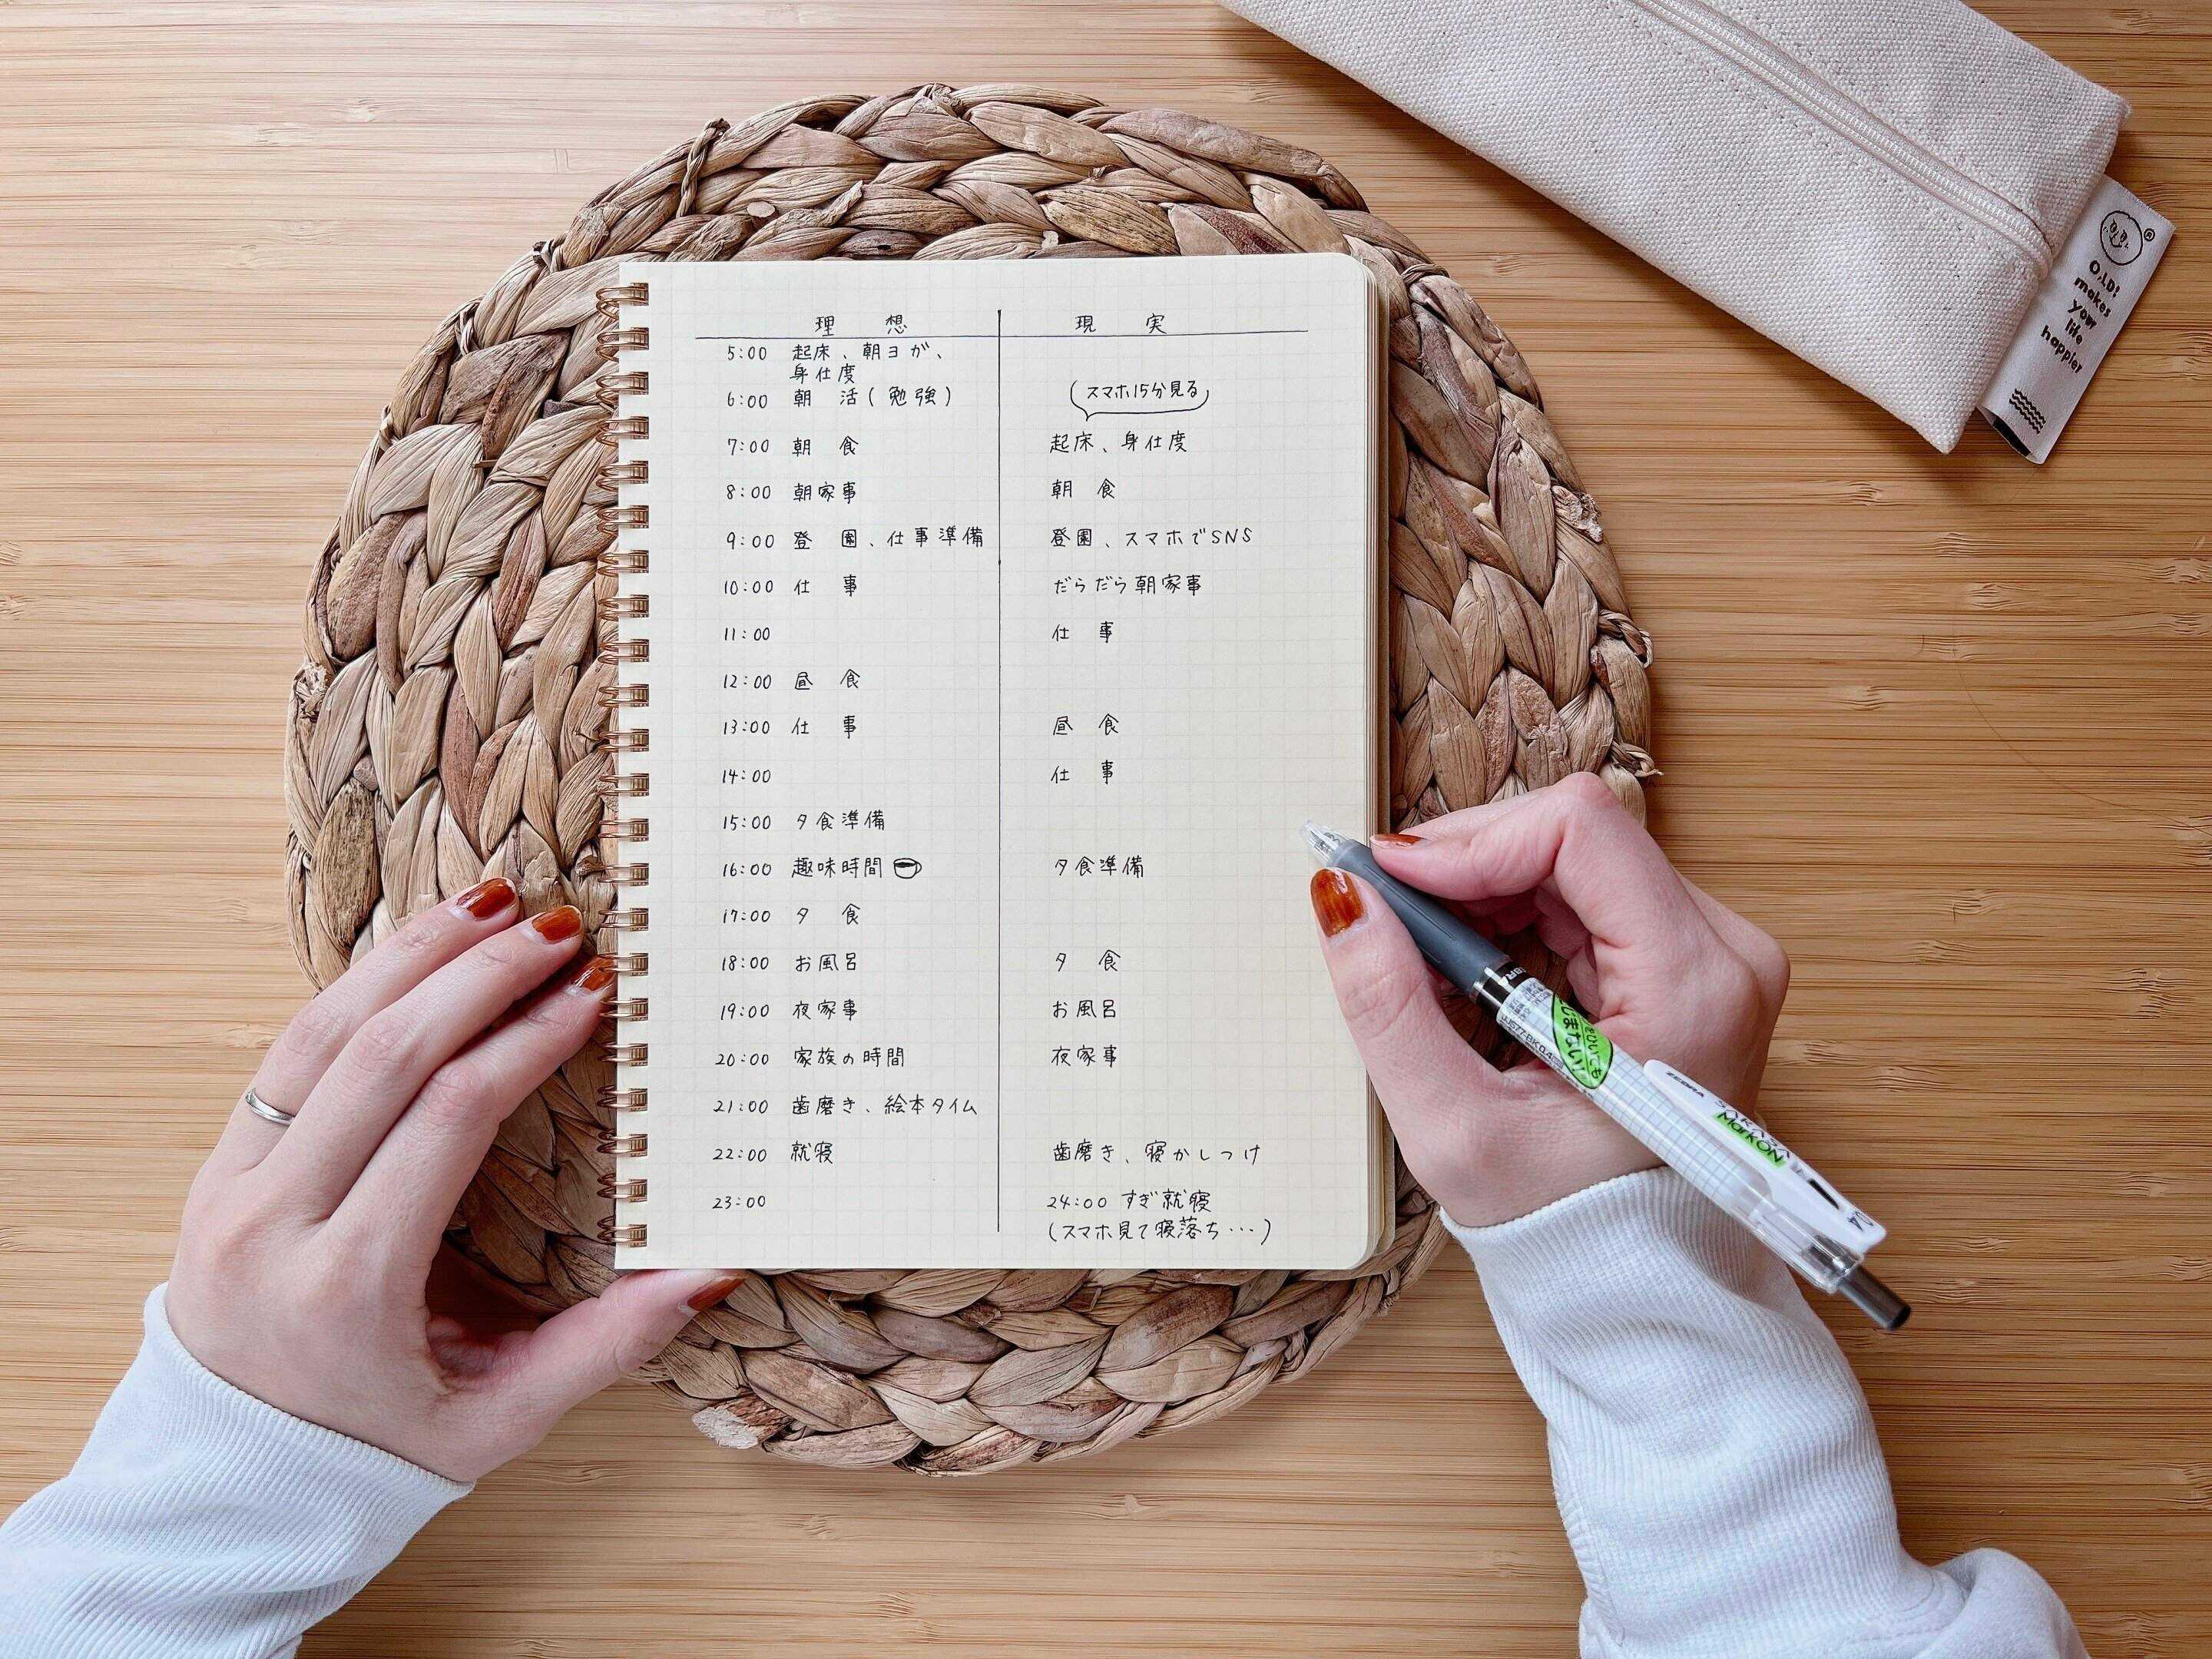 理想 現実
5:00 起床、朝ヨガ、
身仕度
6:00 朝活(勉強)
(スマホ15分見る)
7:00 朝食 起床、身仕度
8:00 朝家事 朝食
9:00 登園、仕事準備 登園、スマホでSNS
10:00 仕事 だらだら朝家事
11:00 仕事
12:00 昼食
13:00 仕事 昼食
14:00 仕事
15:00 夕食準備
16:00 趣味時間 夕食準備
17:00 夕食
18:00 お風呂 夕食
19:00 夜家事 お風呂
20:00 家族の時間 夜家事
21:00 歯磨き、絵本タイム
22:00 就寝 歯磨き、寝かしつけ
23:00 24:00 すぎ就寝
(スマホ見て寝落ち…)
O,LD!
makes
your
life
happier
ZEBRA
mark ON
0.4